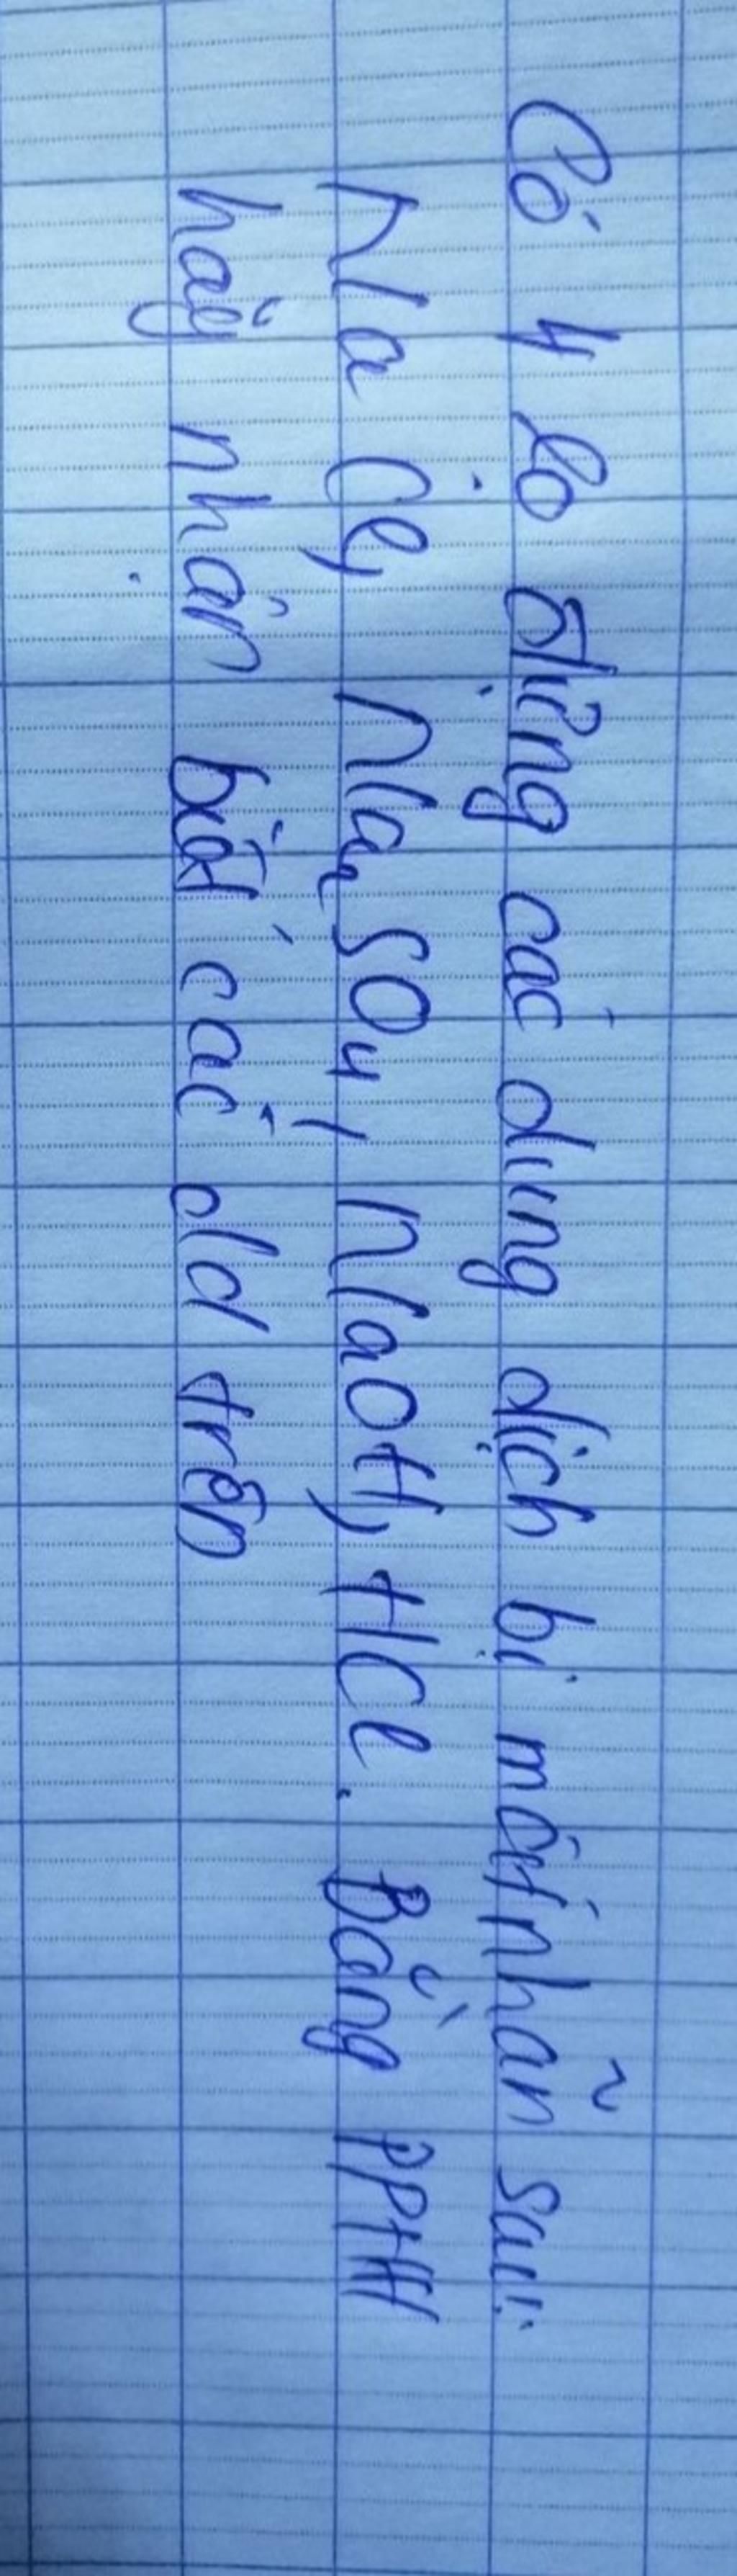 Có 4 lọ đựng các dung dịch bị mất nhãn sau:
NaCl, Na2SO4, NaOH, HCl. Bằng PPHH
hãy nhận biết các dd trên